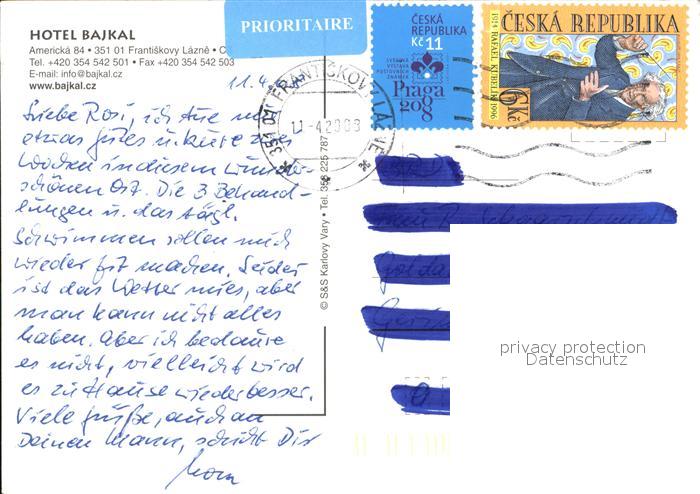 HOTEL BAJKAL
Americká 84 • 351 01 Františkovy Lázně •
Tel. +420 354 542 501 • Fax +420 354 542 503
E-mail: info@bajkal.cz
www.bajkal.cz
PRIORITAIRE
ČESKÁ
REPUBLIKA
Kč 11
SVĚTOVÁ
VÝSTAVA
POŠTOVNÍCH
ZNÁMEK
Praga
2008
ČESKÁ REPUBLIKA
1914 RAFAEL KUBELÍK 1996
6 Kč
351 01 FRANTIŠKOVY LÁZNĚ
11.-4.2008
11.4.
Liebe Rosi, ich tue mir
etwas Gutes u. kure zwei
Wochen in diesem wunder-
schönen Ort. Die 3 Behand-
lungen u. das tägl.
Schwimmen sollen mich
wieder fit machen. Leider
ist das Wetter mies, aber
man kann nicht alles
haben. Aber ich bedaure
es nicht, vielleicht wird
es zu Hause wieder besser.
Viele Grüße, auch an
Deinen Mann, schickt Dir
© S&S Karlovy Vary • Tel. 353 225 787
privacy protection
Datenschutz